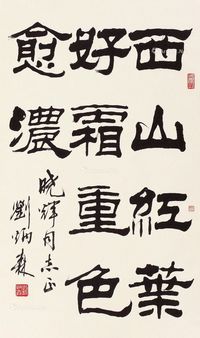 西山紅葉
好霜重色
愈濃
晓輝同志正
劉炳森